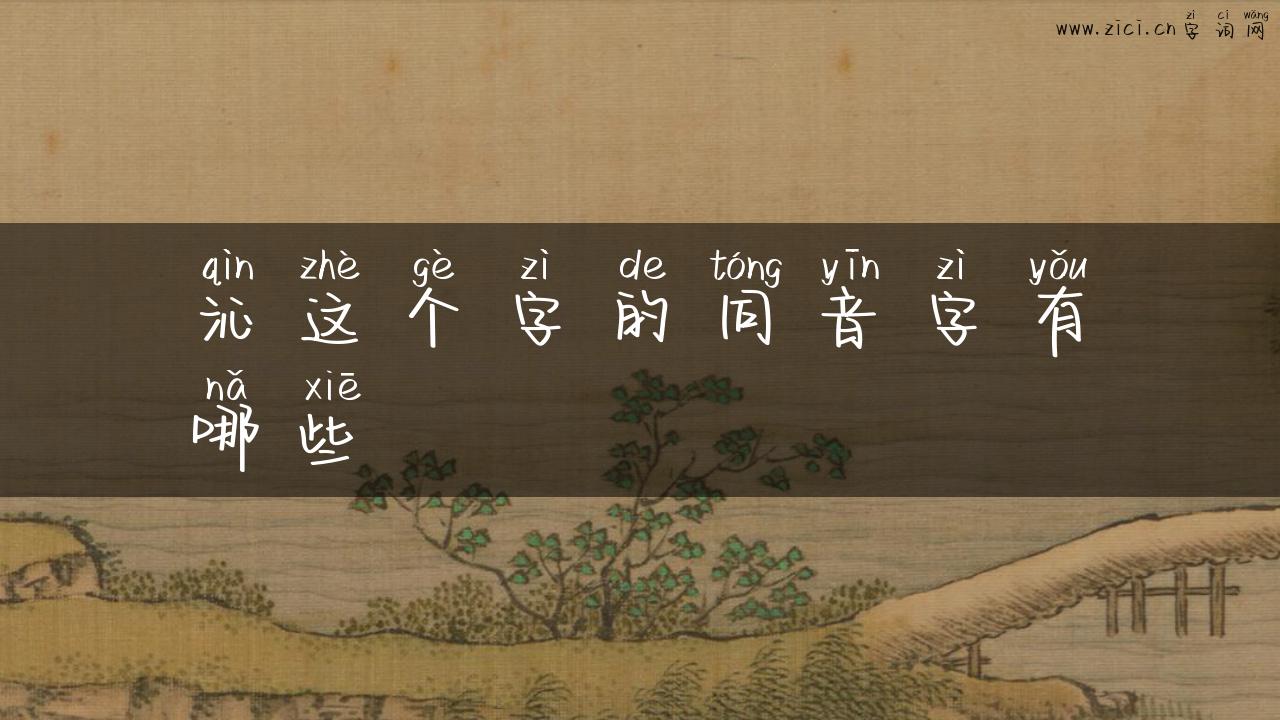 zì cí wǎng
www.zici.cn 字 词 网
qìn zhè gè zì de tóng yīn zì yǒu
沁 这 个 字 的 同 音 字 有
nǎ xiē
哪 些